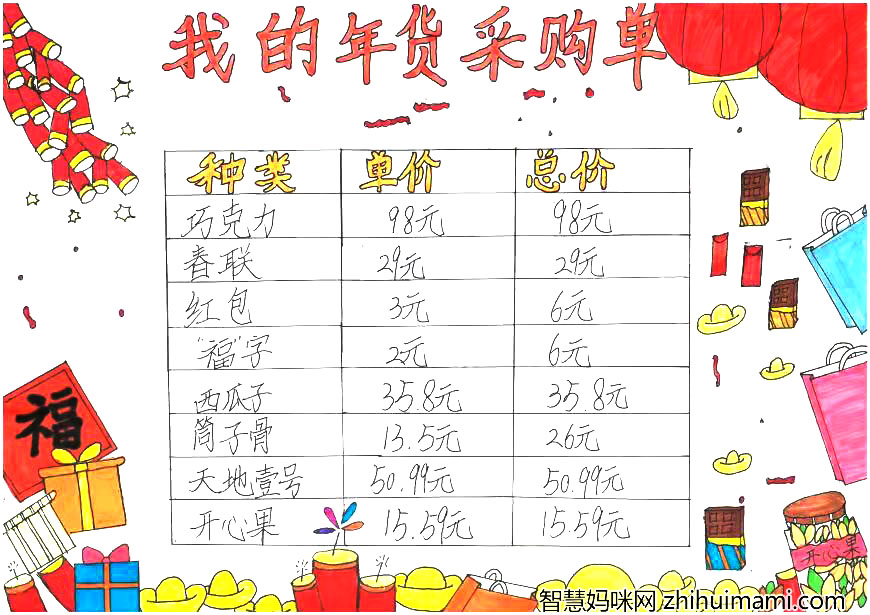 我的年货采购单
种类 单价 总价
巧克力 98元 98元
春联 29元 29元
红包 3元 6元
"福"字 2元 6元
西瓜子 35.8元 35.8元
筒子骨 13.5元 26元
天地壹号 50.99元 50.99元
开心果 15.59元 15.59元
福
开心果
智慧妈咪网 zhihuimami.com